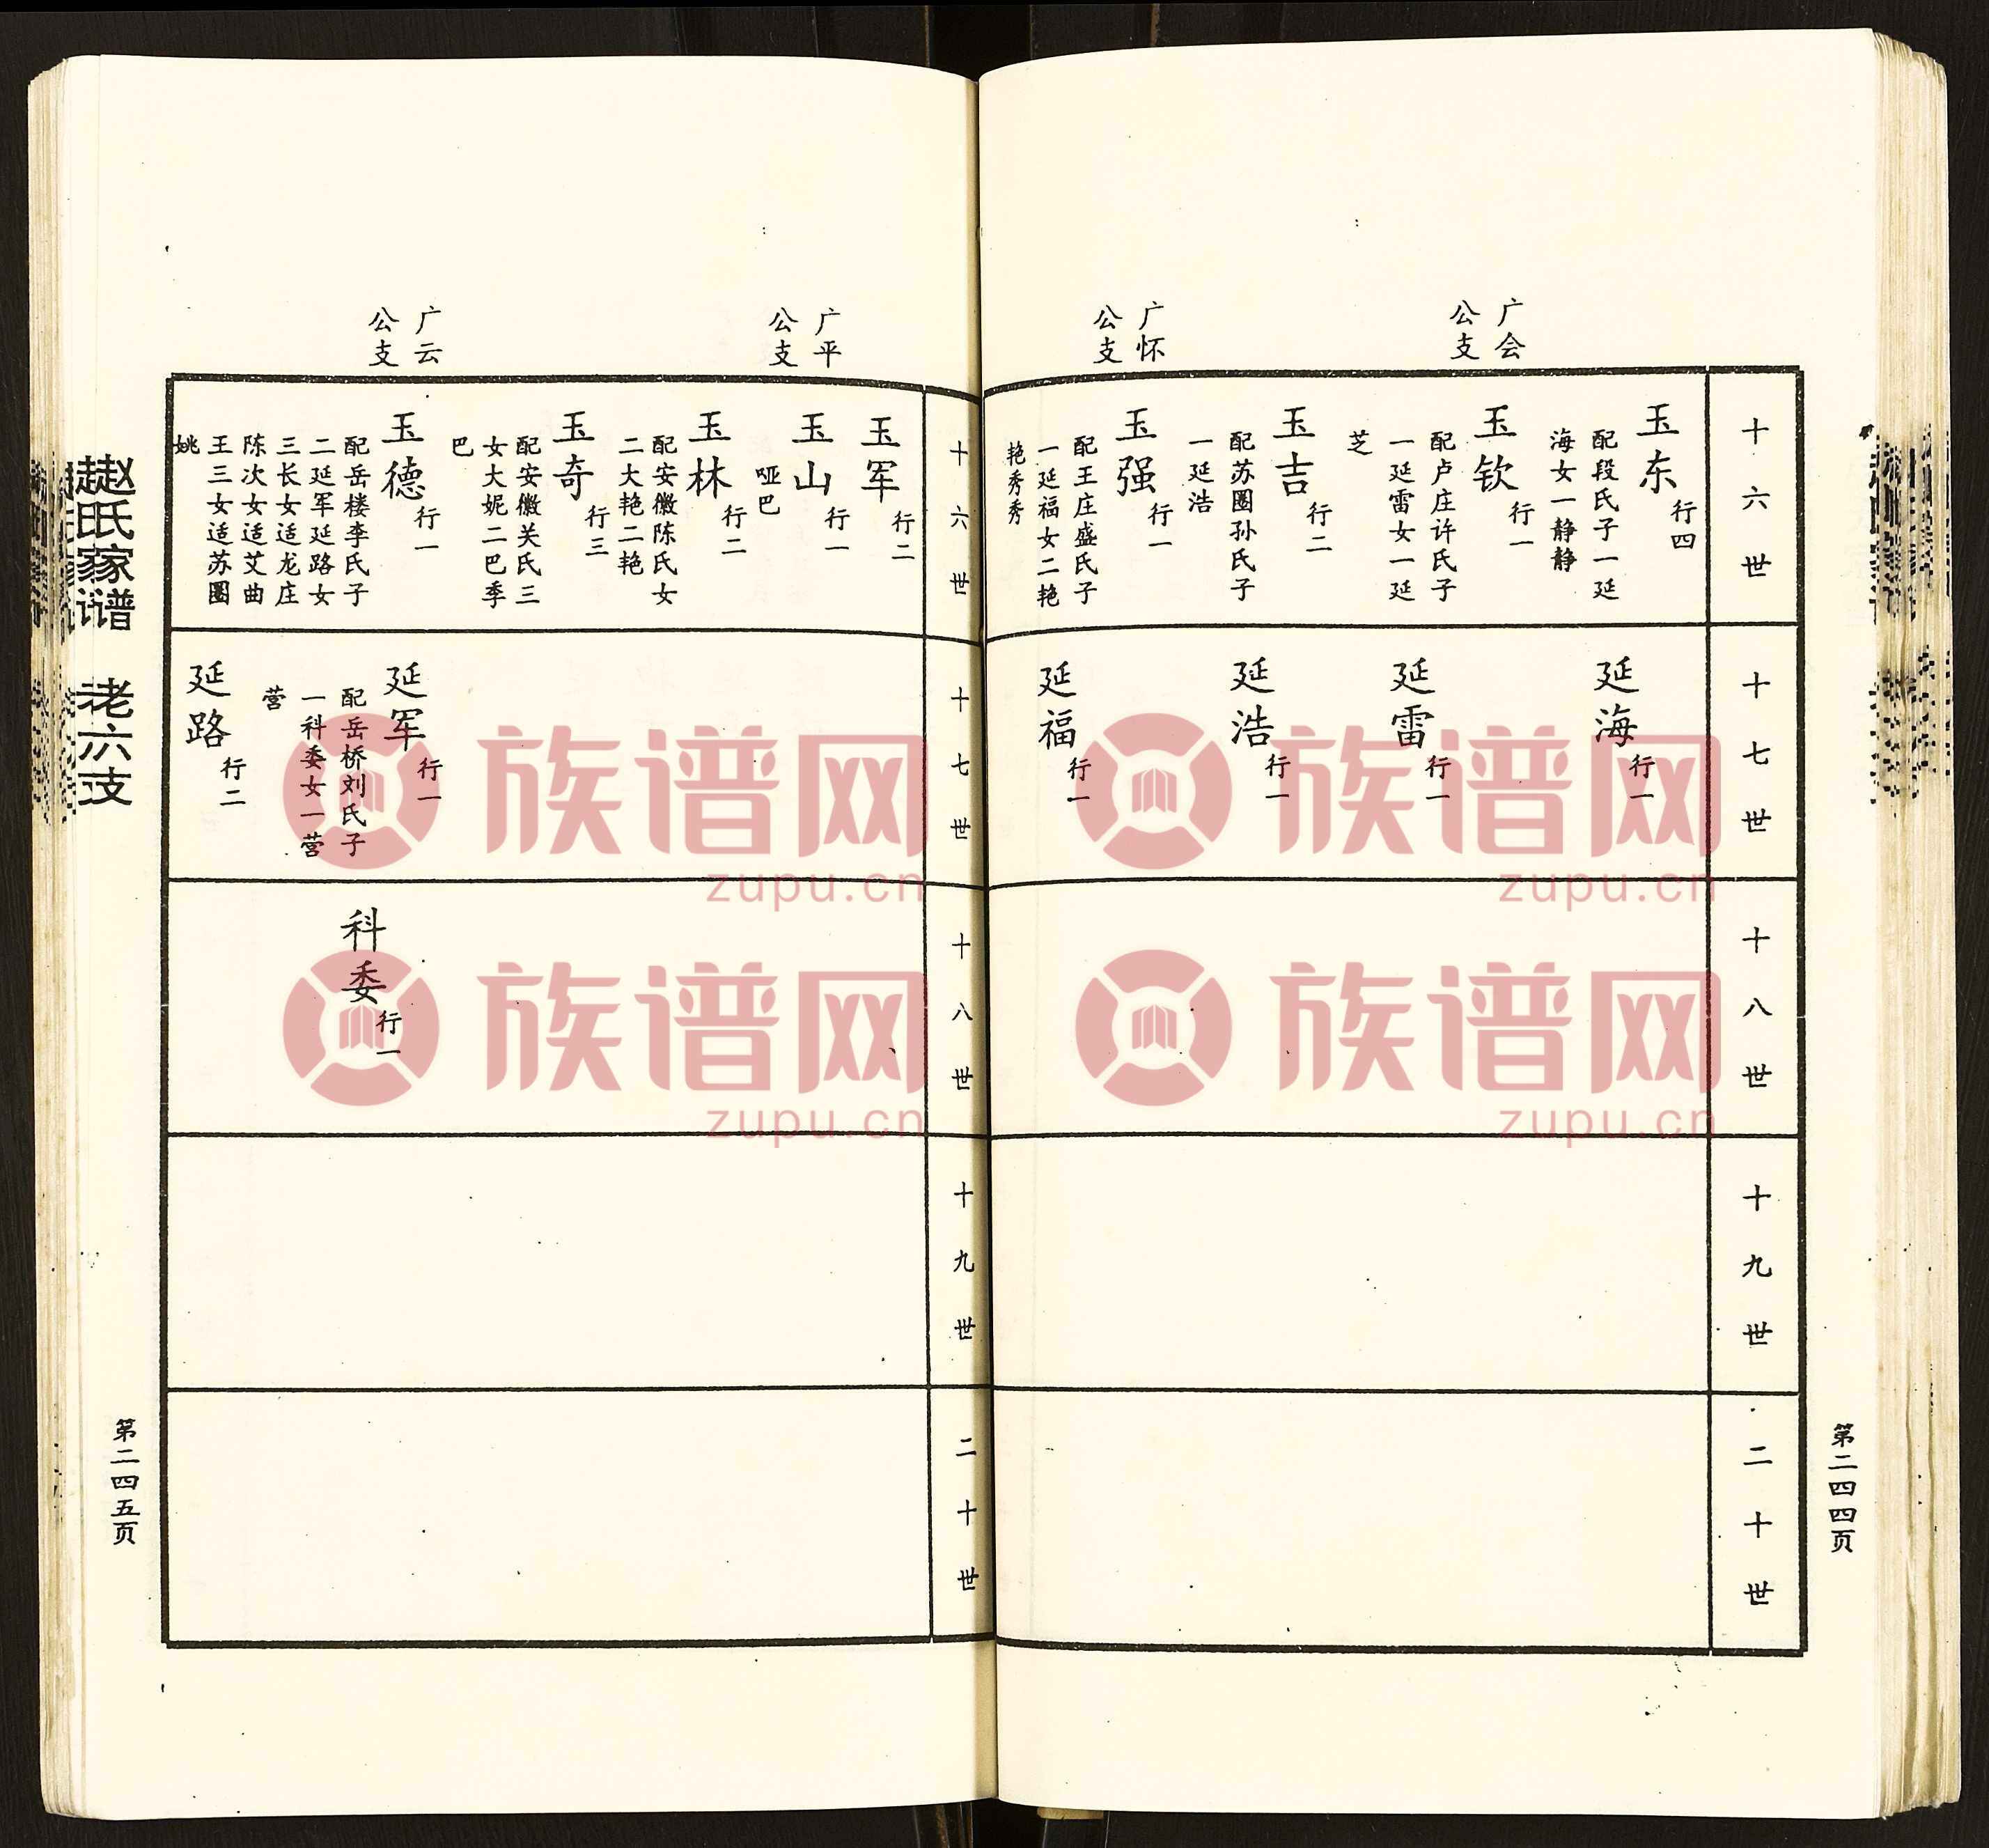 广会
公支
广怀
公支
十六世
玉东 行四
配段氏子一延
海女一静静
玉钦 行一
配卢庄许氏子
一延雷女一延
芝
玉吉 行二
配苏圈孙氏子
一延浩
玉强 行一
配王庄盛氏子
一延福女二艳
艳秀秀
十七世
延海 行一
延雷 行一
延浩 行一
延福 行一
十八世
十九世
二十世
第二四四页
广平
公支
广云
公支
十六世
玉军 行二
玉山 行一
哑巴
玉林 行二
配安徽陈氏女
二大艳二艳
玉奇 行三
配安徽关氏三
女大妮二巴季
巴
玉德 行一
配岳楼李氏子
二延军延路女
三长女适龙庄
陈次女适艾曲
王三女适苏圈
姚
十七世
延军 行一
配岳桥刘氏子
一科委女一营
营
延路 行二
十八世
科委 行一
十九世
二十世
赵氏家谱 老六支
第二四五页
族谱网
zupu.cn
族谱网
zupu.cn
族谱网
zupu.cn
族谱网
zupu.cn